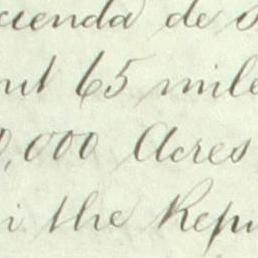 cienda de S
ut 65 mile
0,000 Acres
i the Repu